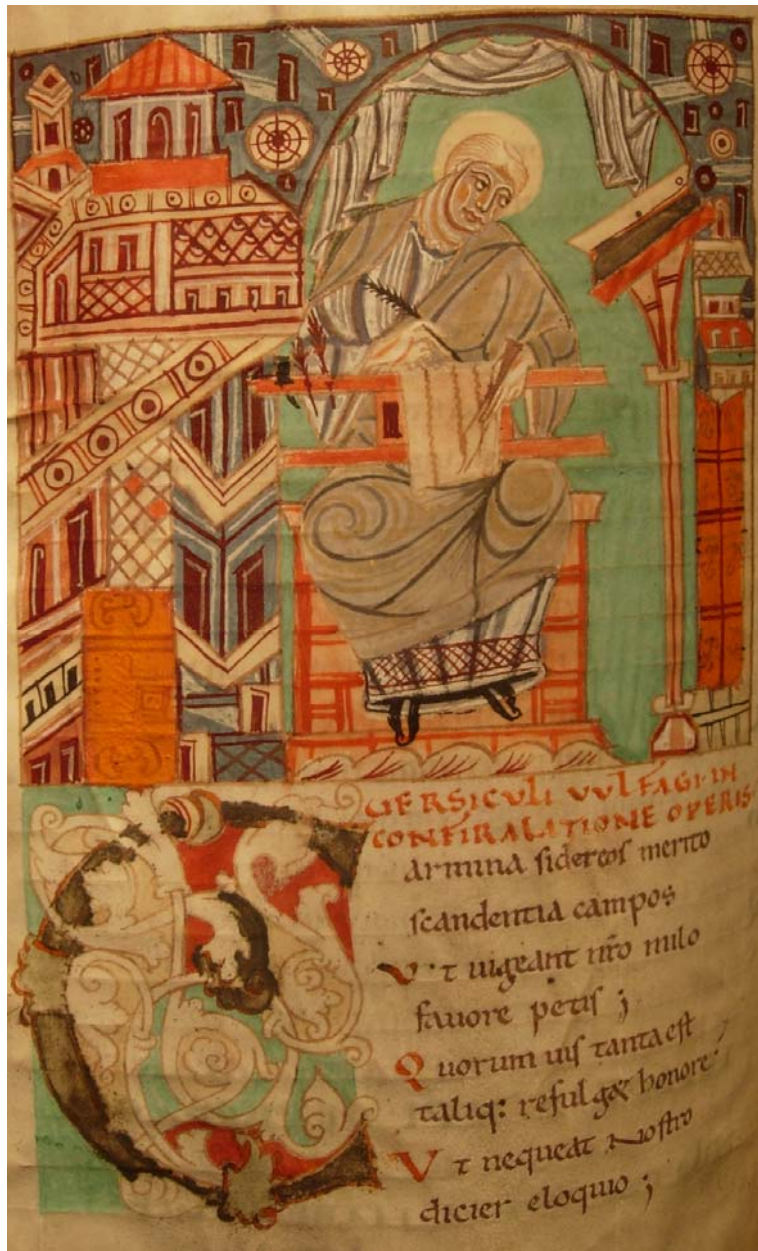 VERSICVLI VVLFAGI IN
CONFIRMATIONE OPERIS
Carmina sidereos merito
scandentia campos
Vt uigeant nr̄o milo
fauore petis ;
Quorum uis tanta est
taliq: refulg& honore;
Vt nequeat nostro
dicier eloquio ;